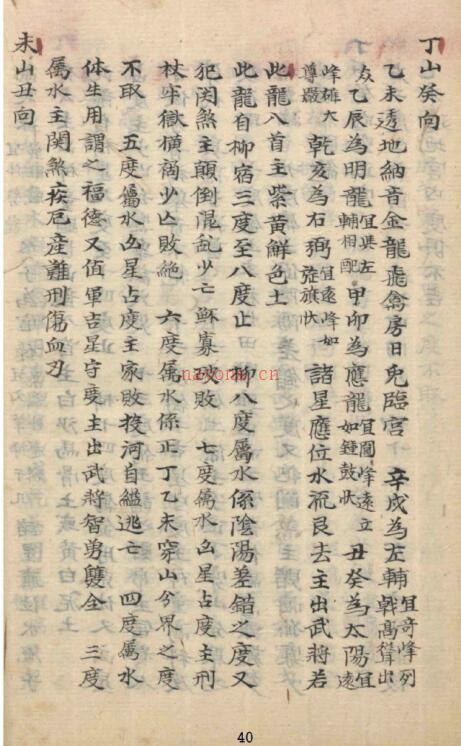 丁山癸向
乙未透地納音金龍亢禽房日兔臨宮　辛戌為左輔宜奇峰列戟高聳出
衆乙辰為明龍宜與左輔相配甲卯為應龍宜圓峰遠立如鐘鼓狀丑癸為太陽宜遠
峰雄大尊嚴乾亥為右弼宜遠峰如發旗狀諸星應位水流艮去主出武將若
此龍入首主紫黃鮮色土
此龍自柳宿三度至八度止　柳八度屬水係陰陽差錯之度又
犯関煞主顛倒混乱少亡鰥寡残敗　七度屬水凶星占度主刑
杖牢獄横禍少亾敗絶　六度屬水係正丁乙未穿山分界之度
不取　五度屬水凶星占度主家敗投河自縊逃亡　四度屬水
体生用謂之福德又值軍吉星守度主出武將智勇雙全　三度
屬水主関煞疾厄産難刑傷血刃
未山丑向
nayona.cn
40